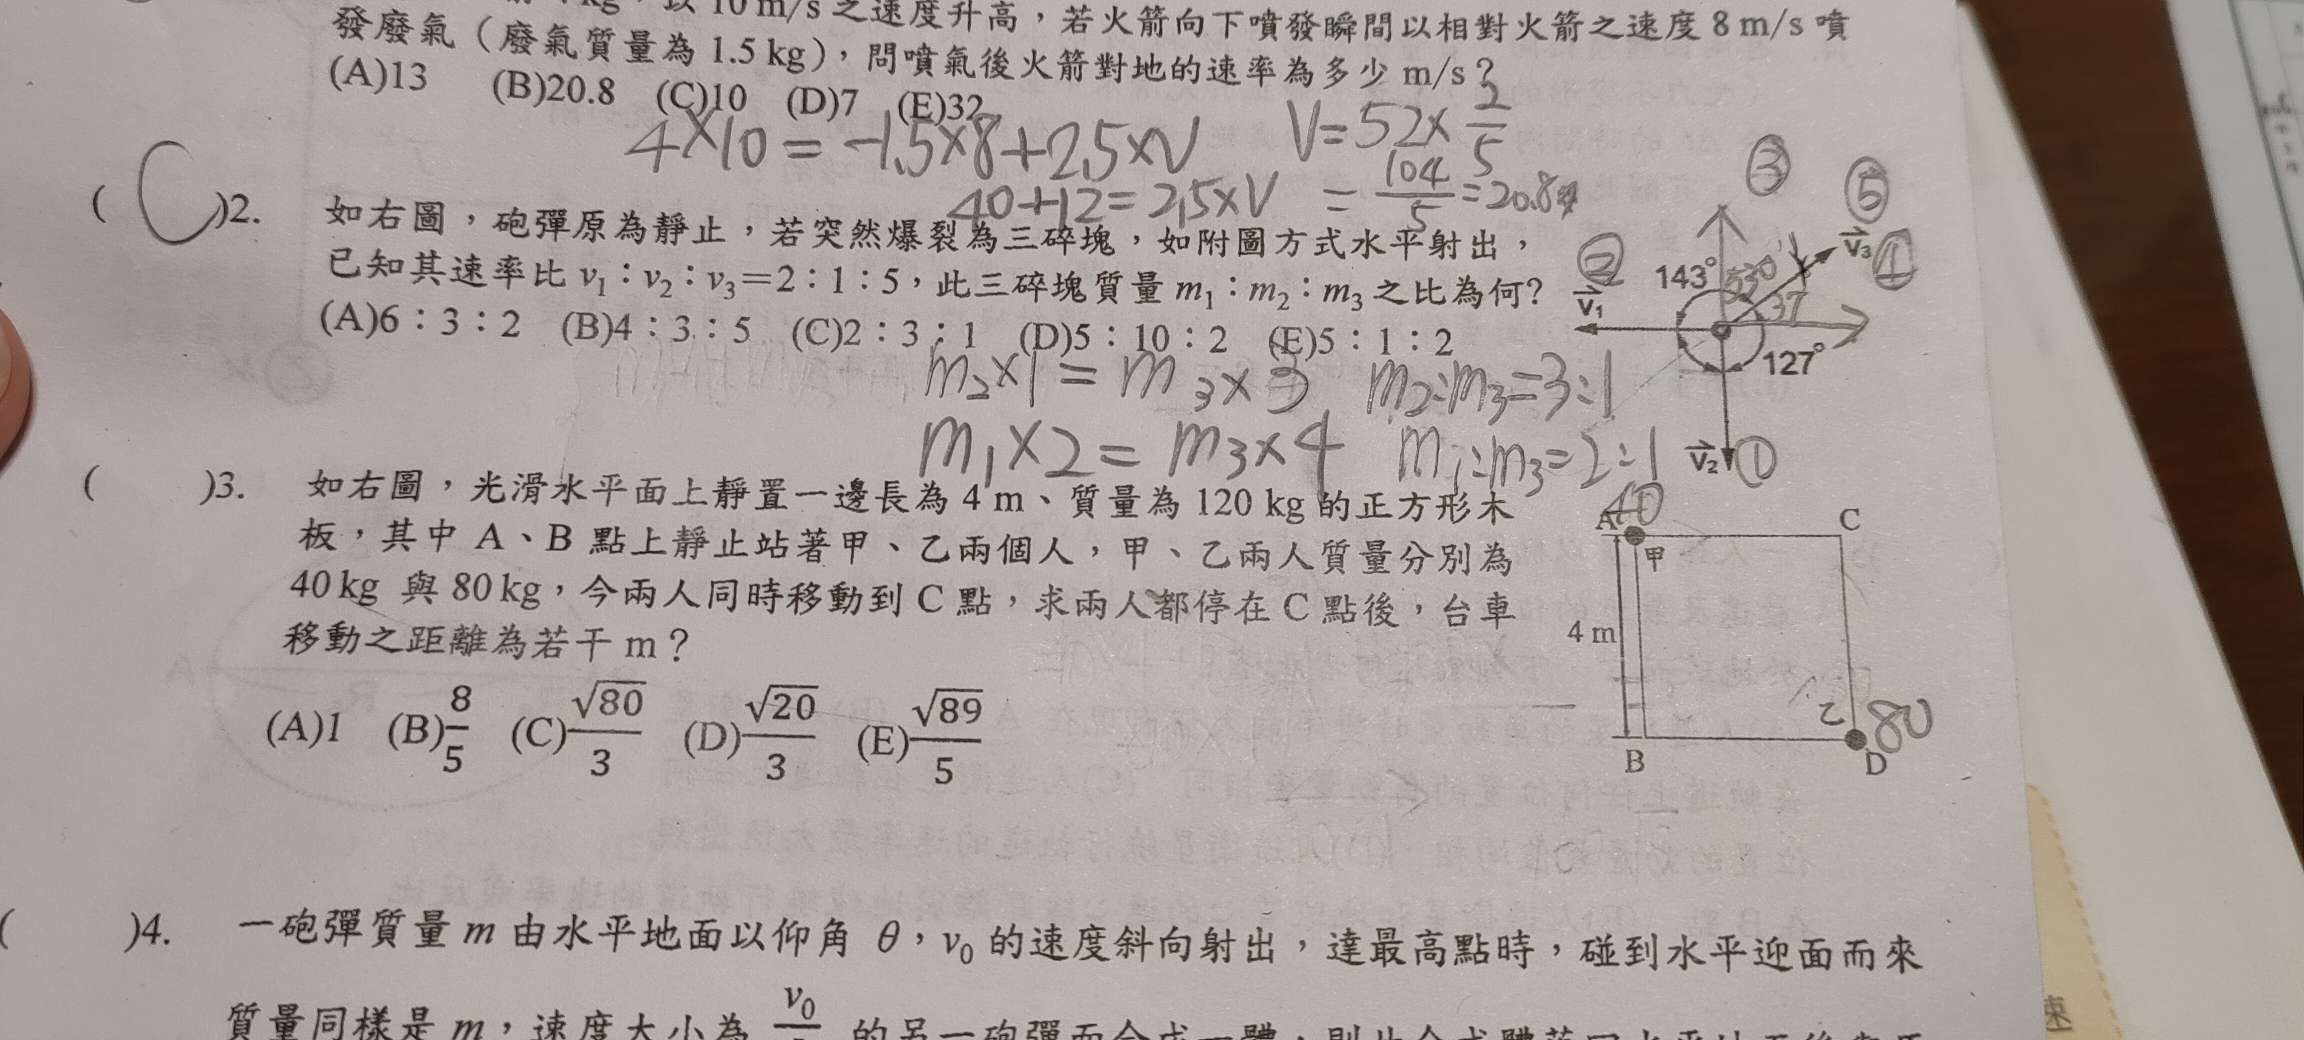 kg，以 10 m/s 之速度升高，若火箭向下噴發瞬間以相對火箭之速度 8 m/s 噴
發廢氣（廢氣質量為 1.5 kg），問噴氣後火箭對地的速率為多少 m/s？
(A)13 (B)20.8 (C)10 (D)7 (E)32
4×10 = -1.5×8+2.5×V
V=52×2/5
40+12=2.5×V = 104/5 =20.8
( C )2. 如右圖，砲彈原為靜止，若突然爆裂為三碎塊，如附圖方式水平射出，
已知其速率比 v₁：v₂：v₃=2：1：5，此三碎塊質量 m₁：m₂：m₃ 之比為何?
(A)6：3：2 (B)4：3：5 (C)2：3：1 (D)5：10：2 (E)5：1：2
m₂×1 = m₃×3 m₂:m₃=3:1
m₁×2= m₃×4 m₁:m₃=2:1
③
⑤
② 143° 53° v₃ ④
v₁ 37
127°
v₂ ①
( )3. 如右圖，光滑水平面上靜置一邊長為 4 m、質量為 120 kg 的正方形木
板，其中 A、B 點上靜止站著甲、乙兩個人，甲、乙兩人質量分別為
40 kg 與 80 kg，今兩人同時移動到 C 點，求兩人都停在 C 點後，台車
移動之距離為若干 m？
(A)1 (B)8/5 (C)√80/3 (D)√20/3 (E)√89/5
A 40 C
甲
4 m
乙 80
B D
( )4. 一砲彈質量 m 由水平地面以仰角 θ，v₀ 的速度斜向射出，達最高點時，碰到水平迎面而來
質量同樣是 m，速度大小為 v₀ 的另一砲彈而合成一體，則此合成體落回水平地面後與原
速